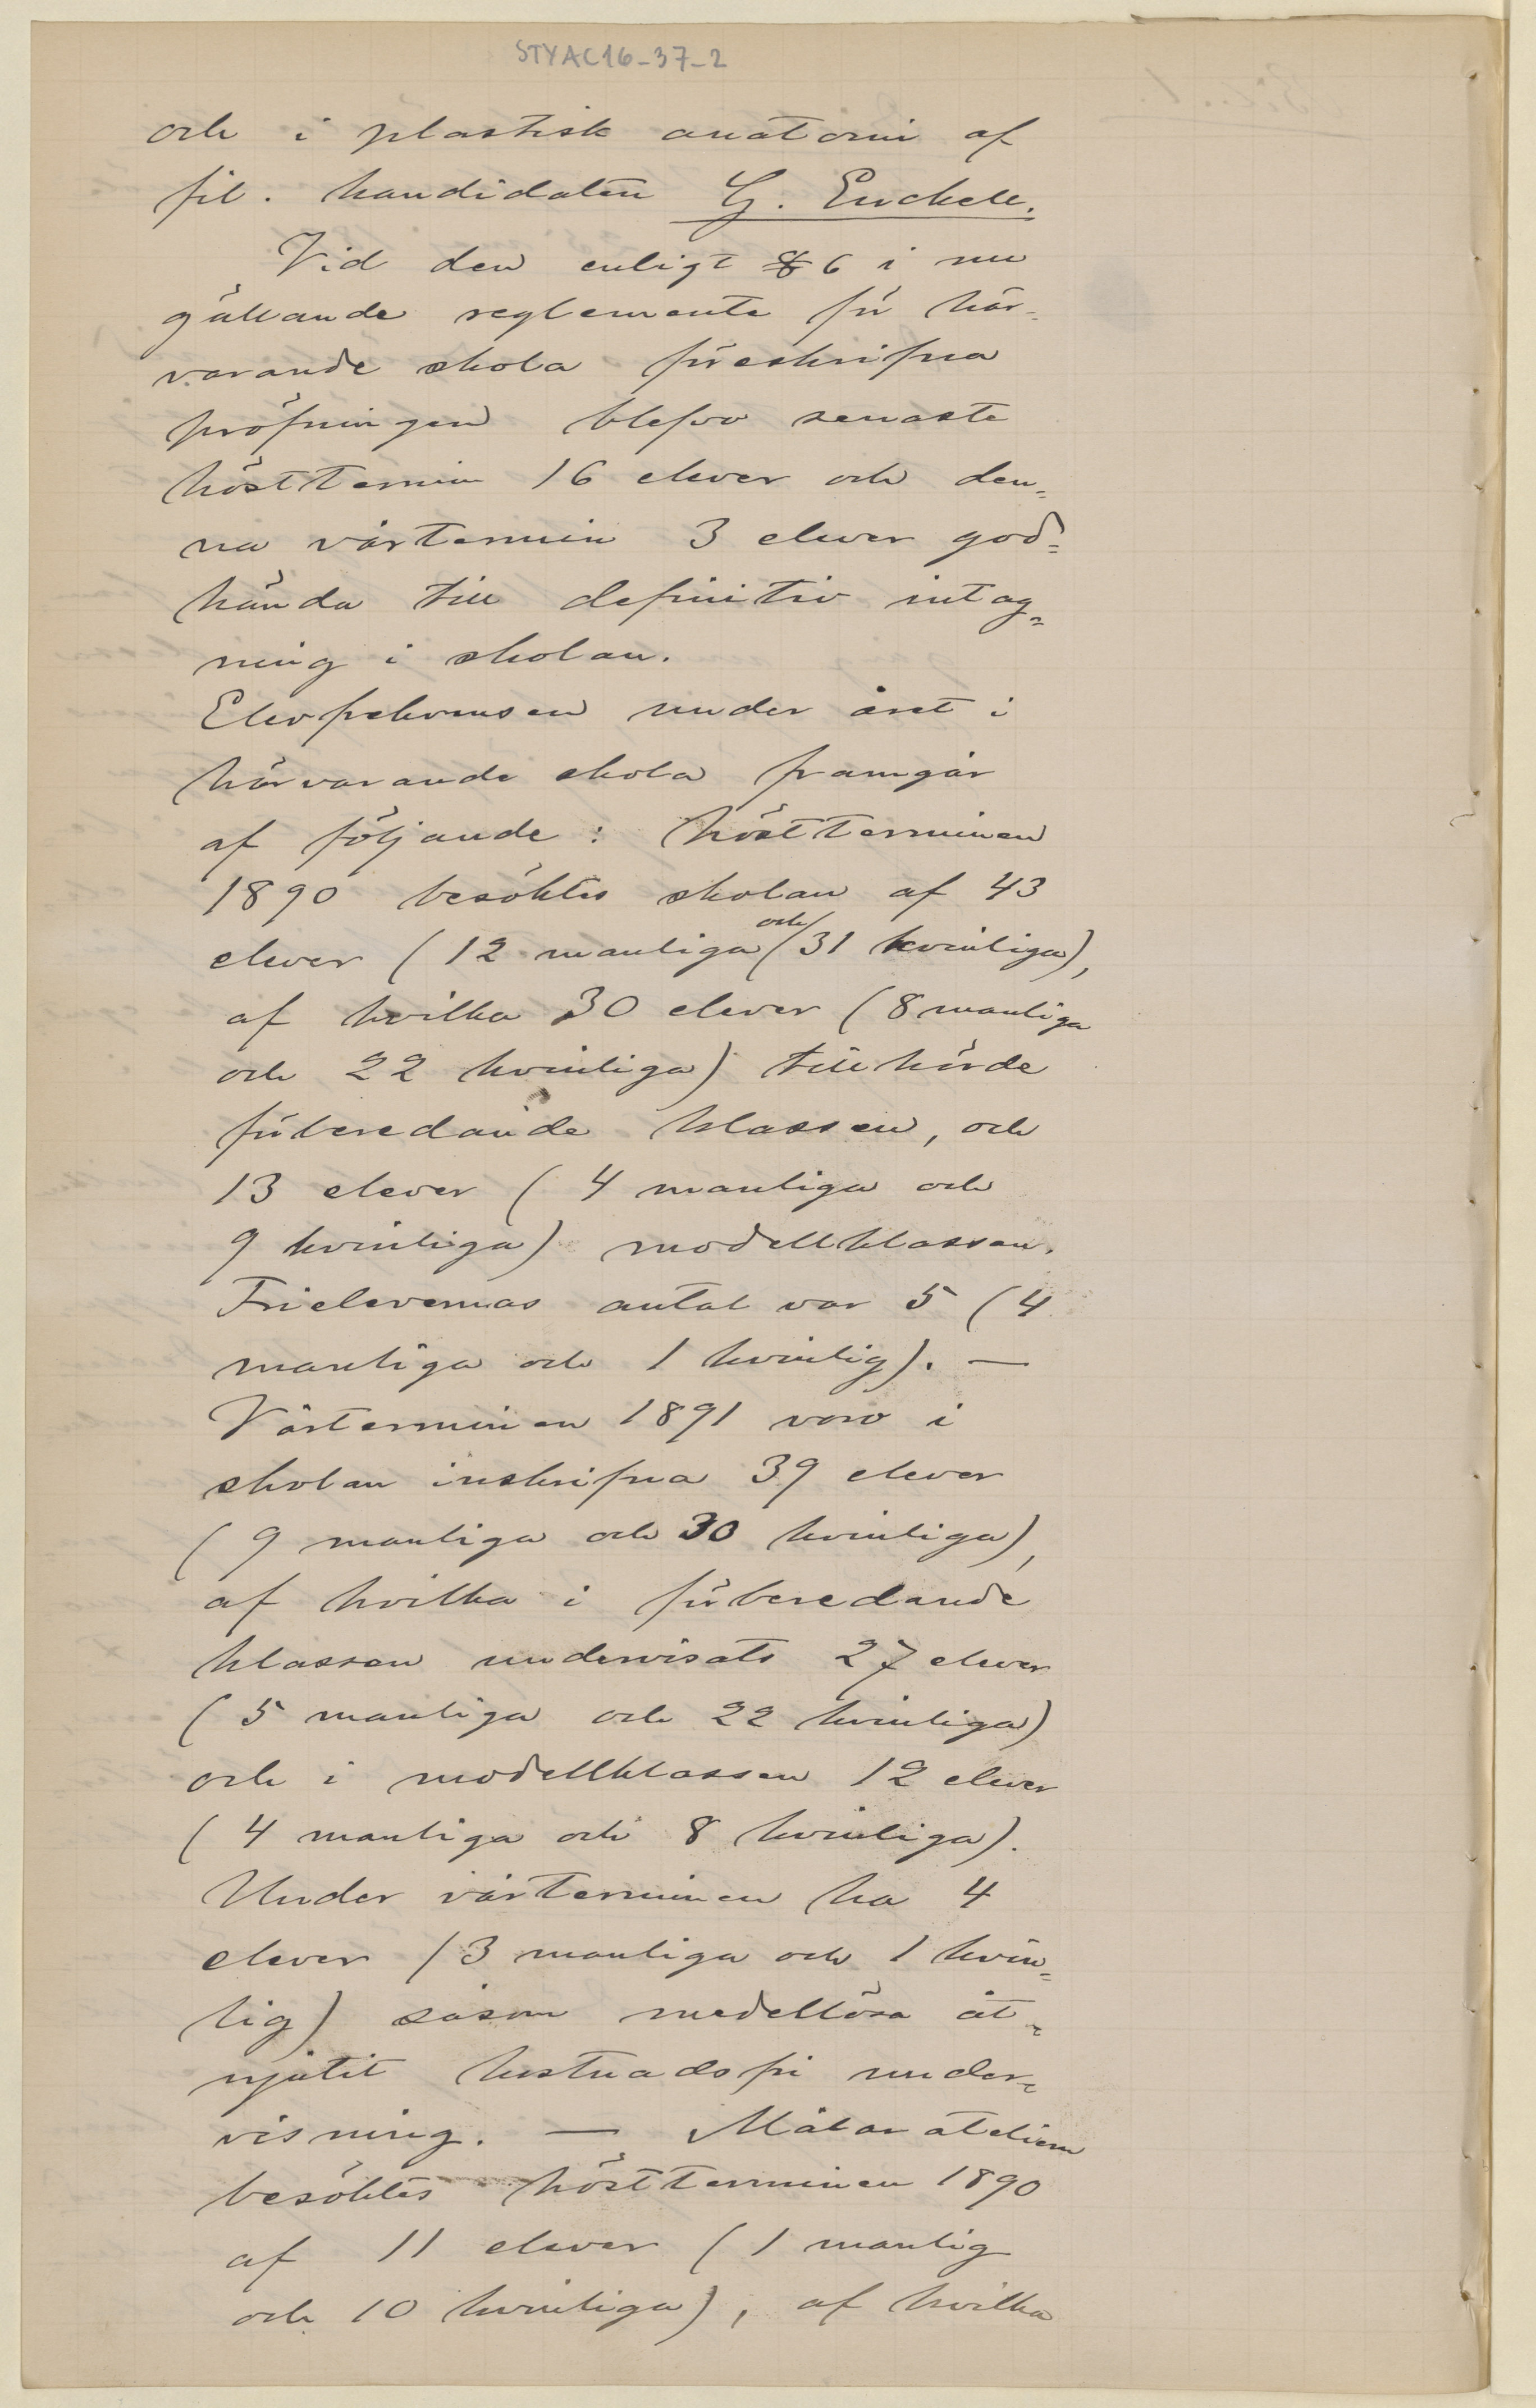 STYAC16-37-2
och i plastisk anatomi af
fil. kandidaten G. Enckell.
Vid den enligt § 6 i nu
gällande reglemente för här-
varande skola föreskrifna
pröfningen blefvo senaste
hösttermin 16 elever och den-
na vårtermin 3 elever god=
kända till definitiv intag=
ning i skolan.
Elevfrekvensen under året i
härvarande skola framgår
af följande: höstterminen
1890 besöktes skolan af 43
elever (12 manliga och 31 kvinliga),
af hvilka 30 elever (8 manliga
och 22 kvinliga) tillhörde
förberedande klassen, och
13 elever (4 manliga och
9 kvinliga) modellklassen.
Frielevernas antal var 5 (4
manliga och 1 kvinlig). —
Vårterminen 1891 voro i
skolan inskrifna 39 elever
(9 manliga och 30 kvinliga),
af hvilka i förberedande
klassen undervisats 27 elever
(5 manliga och 22 kvinliga)
och i modellklassen 12 elever
(4 manliga och 8 kvinliga).
Under vårterminen ha 4
elever (3 manliga och 1 kvin=
lig) såsom medellösa åt=
njutit kostnadsfri under=
visning. — Målarateliern
besöktes höstterminen 1890
af 11 elever (1 manlig
och 10 kvinliga), af hvilka